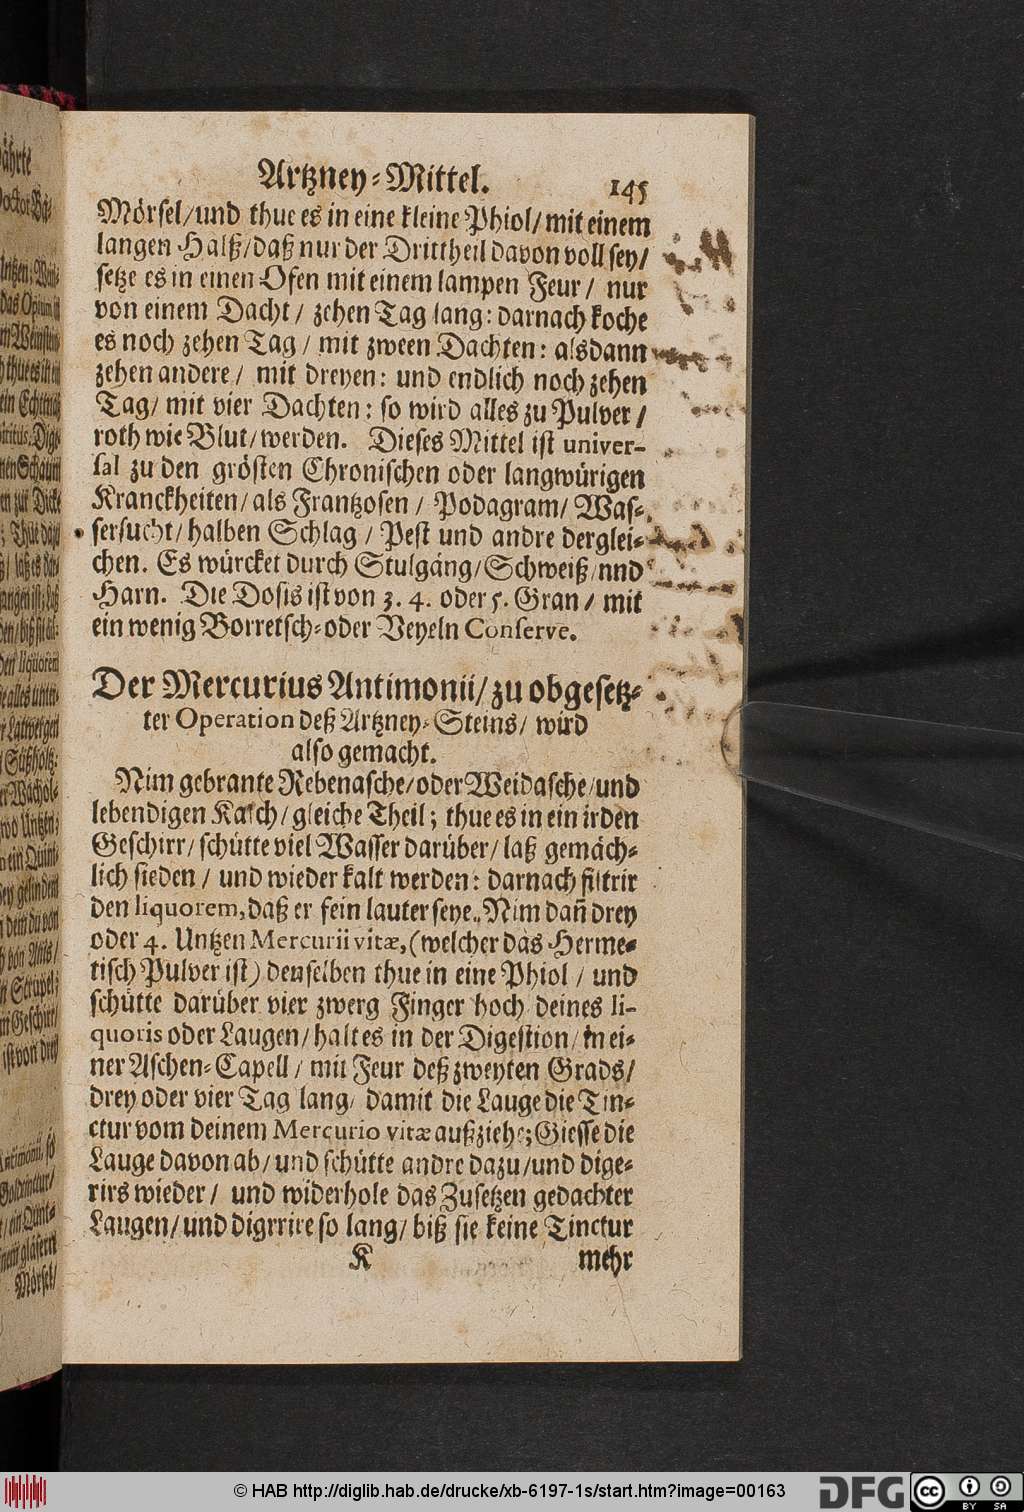 Artzney-Mittel. 145
Mörsel/und thue es in eine kleine Phiol/mit einem
langen Halß/daß nur der Drittheil davon voll sey/
setze es in einen Ofen mit einem lampen Feur/ nur
von einem Dacht/ zehen Tag lang: darnach koche
es noch zehen Tag/ mit zween Dachten: alsdann
zehen andere/ mit dreyen: und endlich noch zehen
Tag/ mit vier Dachten: so wird alles zu Pulver/
roth wie Blut/werden. Dieses Mittel ist univer-
sal zu den grösten Chronischen oder langwürigen
Kranckheiten/als Frantzosen/ Podagram/ Was-
sersucht/halben Schlag/ Pest und andre derglei-
chen. Es würcket durch Stulgäng/Schweiß/nnd
Harn. Die Dosis ist von 3. 4. oder 5. Gran/ mit
ein wenig Borretsch-oder Veyeln Conserve.
Der Mercurius Antimonii/zu obgesetz-
ter Operation deß Artzney-Steins/ wird
also gemacht.
Nim gebrante Rebenasche/oder Weidasche/und
lebendigen Kalch/gleiche Theil; thue es in ein irden
Geschirr/schütte viel Wasser darüber/laß gemäch-
lich sieden/ und wieder kalt werden: darnach filtrir
den liquorem, daß er fein lauter seye. Nim dañ drey
oder 4. Untzen Mercurii vitæ, (welcher das Herme-
tisch Pulver ist) denselben thue in eine Phiol/ und
schütte darüber vier zwerg Finger hoch deines li-
quoris oder Laugen/halt es in der Digestion/in ei-
ner Aschen-Capell/ mit Feur deß zweyten Grads/
drey oder vier Tag lang/ damit die Lauge die Tin-
ctur vom deinem Mercurio vitæ außziehe; Giesse die
Lauge davon ab/und schütte andre dazu/und dige-
rirs wieder/ und widerhole das Zusetzen gedachter
Laugen/und digrrire so lang/biß sie keine Tinctur
K mehr
© HAB http://diglib.hab.de/drucke/xb-6197-1s/start.htm?image=00163
DFG
cc BY SA